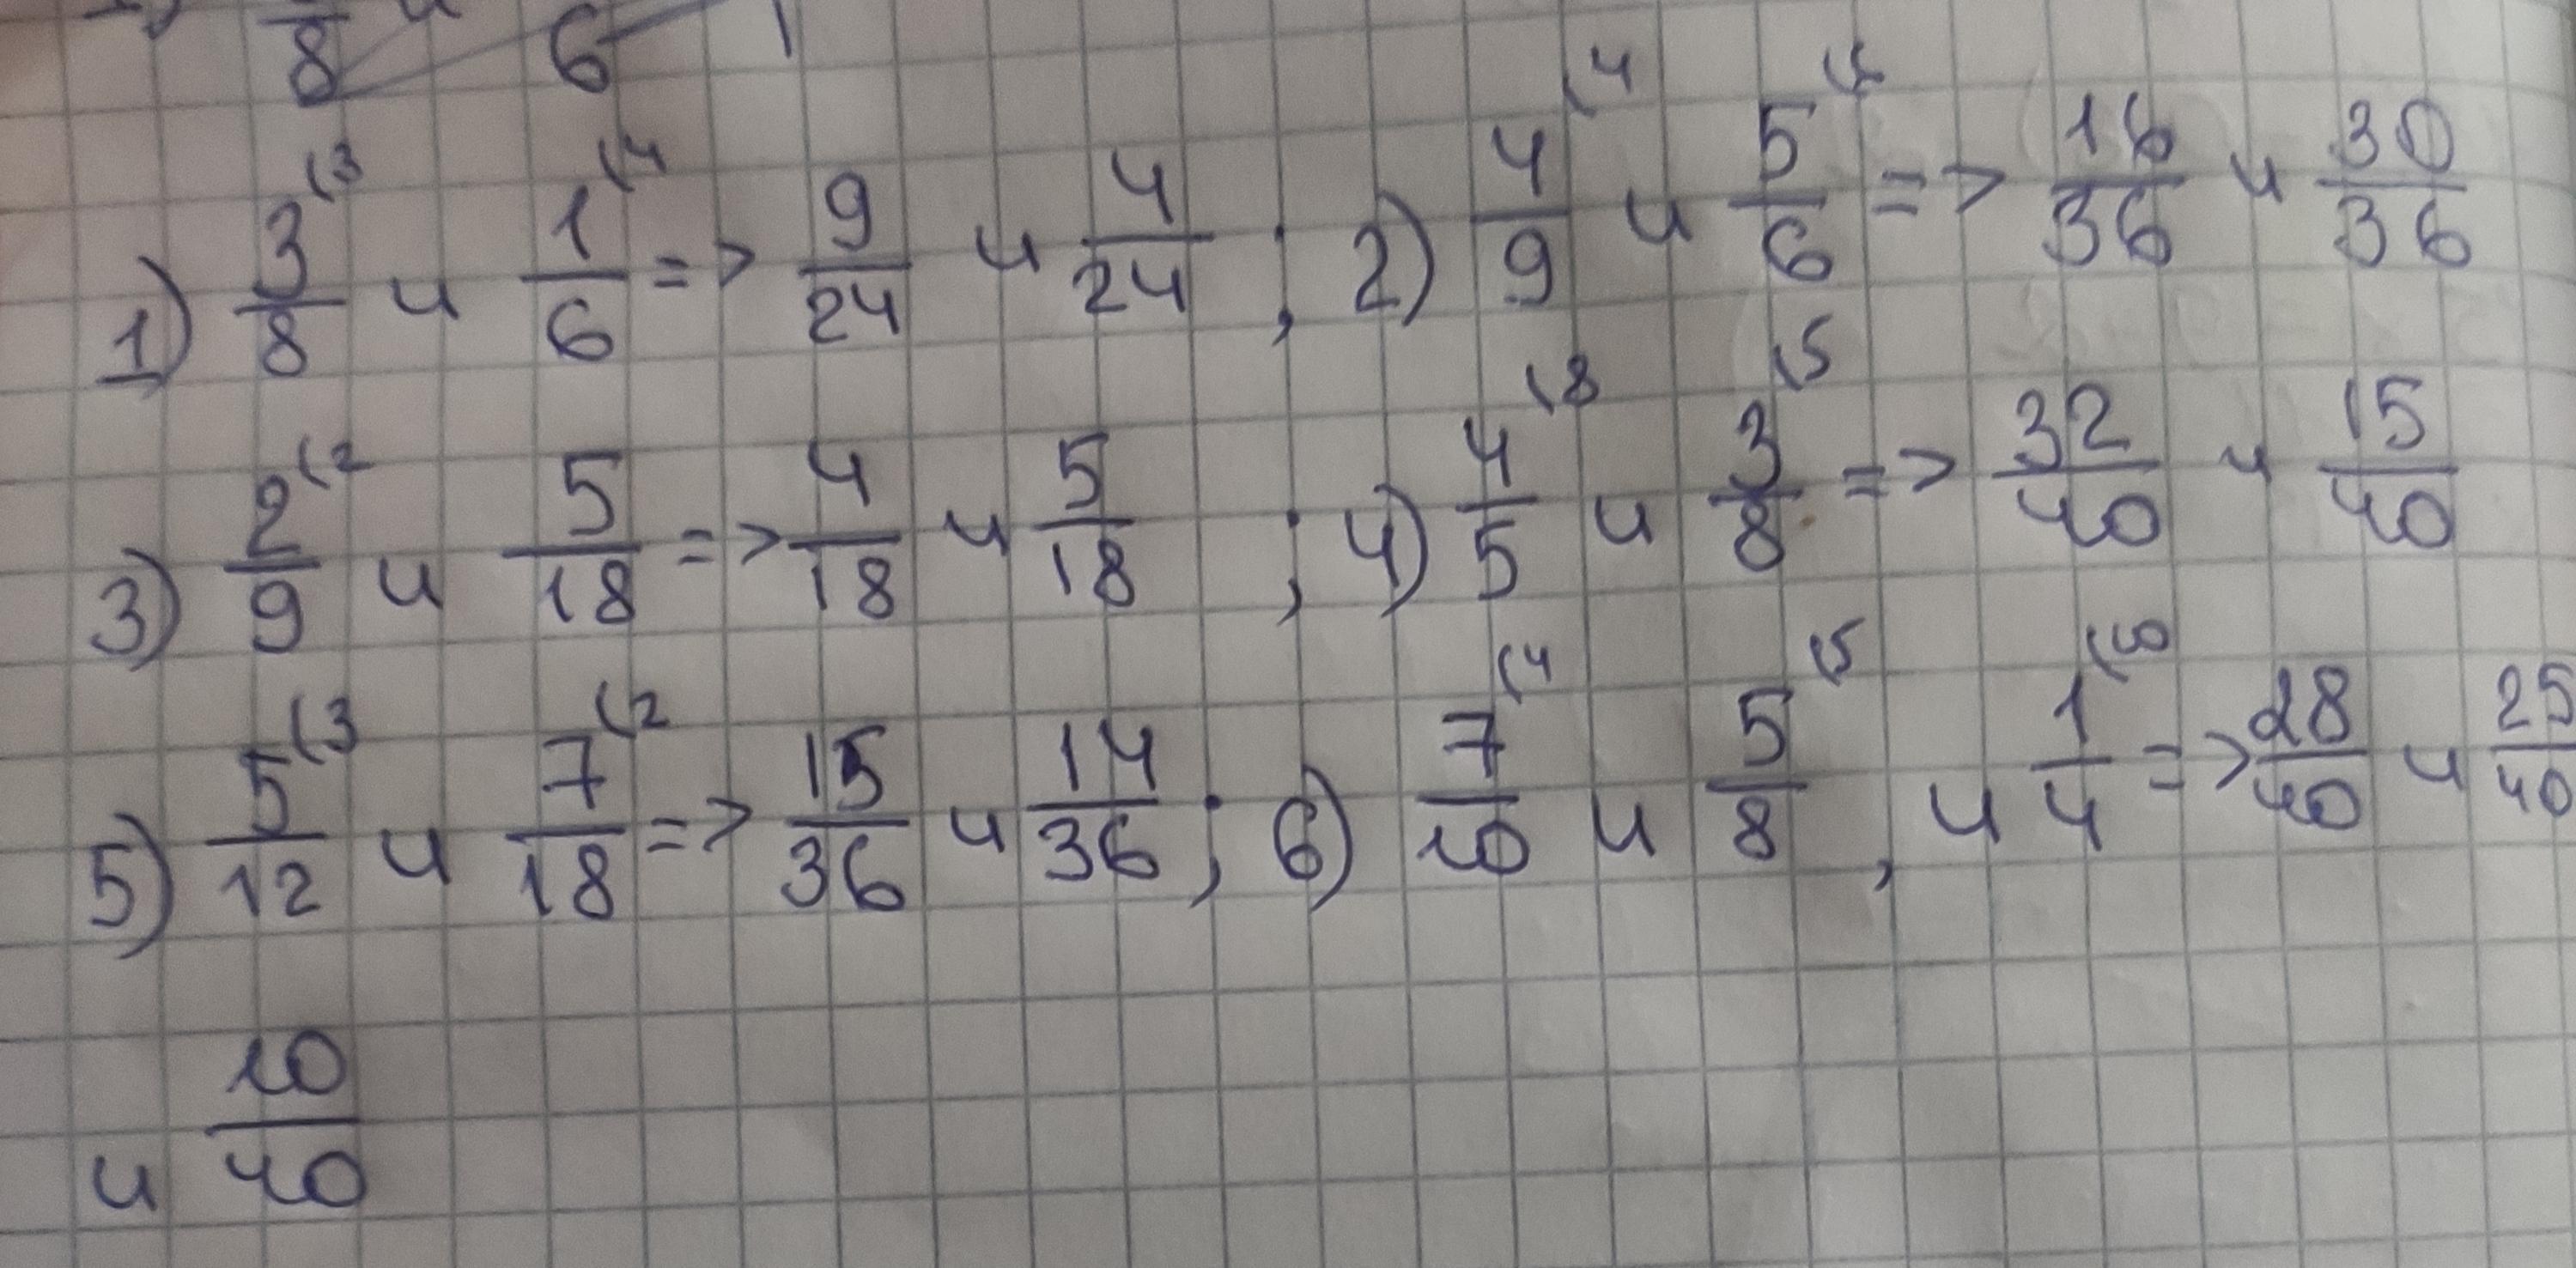 8 6
1) 3/8 (3 и 1/6 (4 => 9/24 и 4/24 ; 2) 4/9 (4 и 5/6 (6 => 16/36 и 30/36
3) 2/9 (2 и 5/18 => 4/18 и 5/18 ; 4) 4/5 (8 и 3/8 (5 => 32/40 и 15/40
5) 5/12 (3 и 7/18 (2 => 15/36 и 14/36 ; 6) 7/10 (4 и 5/8 (5 , и 1/4 (10 => 28/40 и 25/40
и 10/40